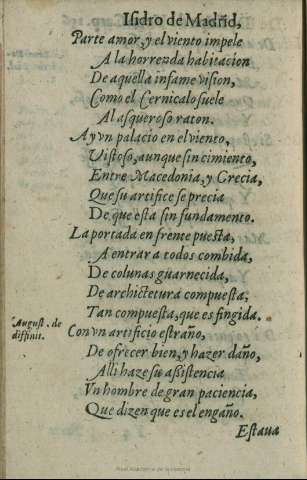 Isidro de Madrid,
Parte amor, y el viento impele
A la horrenda habitacion
De aquella infame vision,
Como el Cernicalo suele
Al asqueroso raton.
Ay vn palacio en el viento,
Vistoso, aunque sin cimiento,
Entre Macedonia, y Grecia,
Que su artifice se precia
De que esta sin fundamento.
La portada en frente puesta,
A entrar a todos combida,
De colunas guarnecida,
De archictetura compuesta,
Tan compuesta, que es fingida.
August. de
diffinit.
Con vn artificio estraño,
De ofrecer bien, y hazer daño,
Alli haze su assistencia
Vn hombre de gran paciencia,
Que dizen que es el engaño.
Estaua